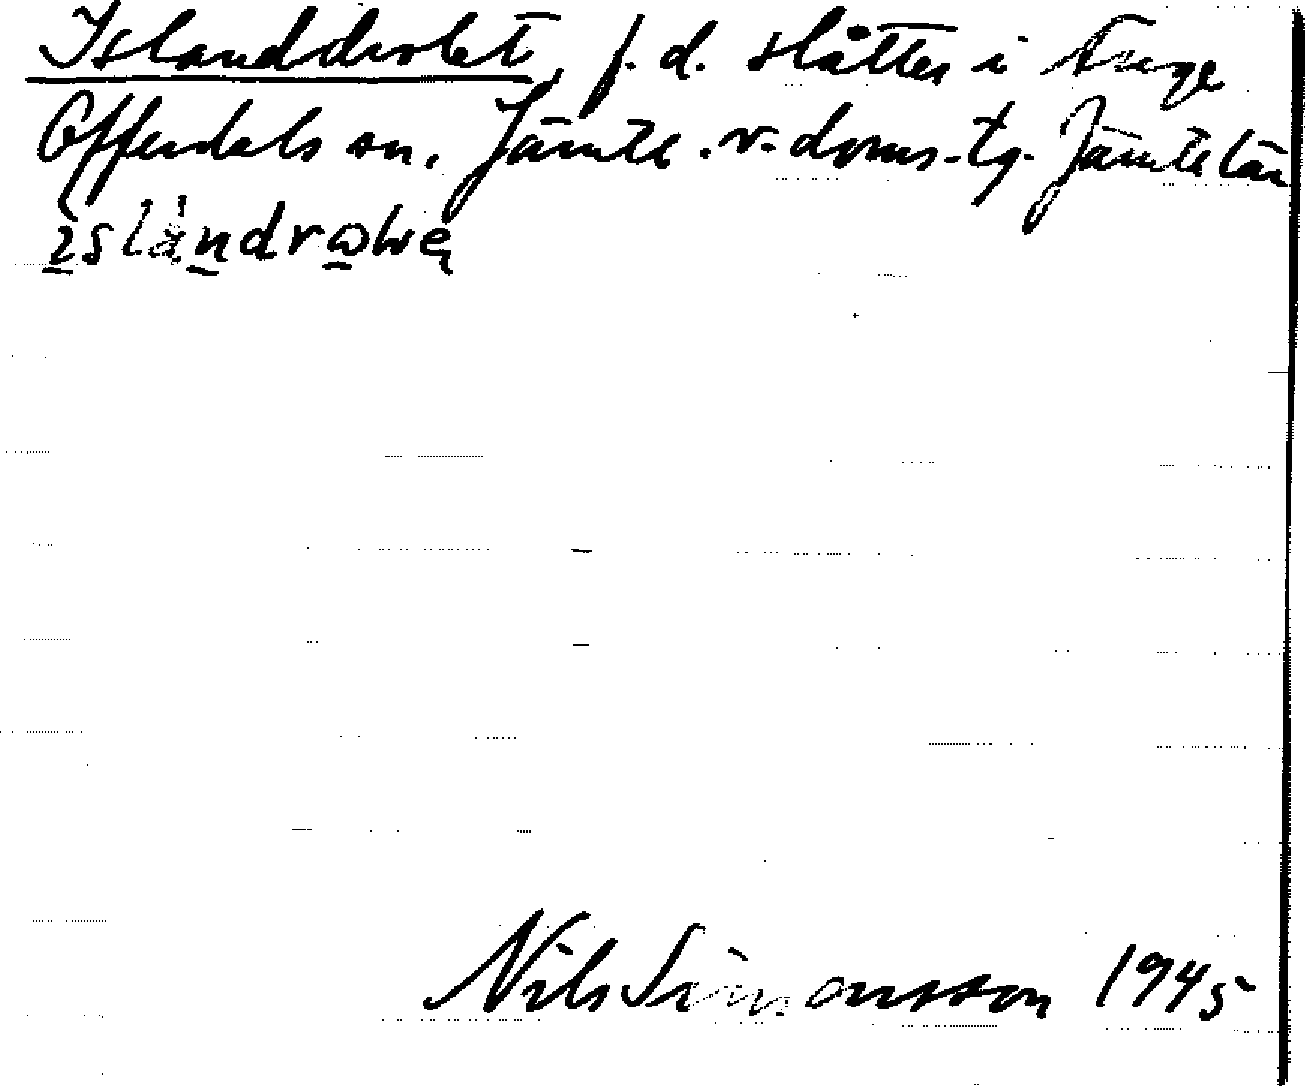 Islanddrolet, f.d. slåtter i Ånge
Offerdals sn. Jämtl. v. doms.-tg. Jämtl. län
ıslàndrωlwe̢
Nils Simonsson 1945